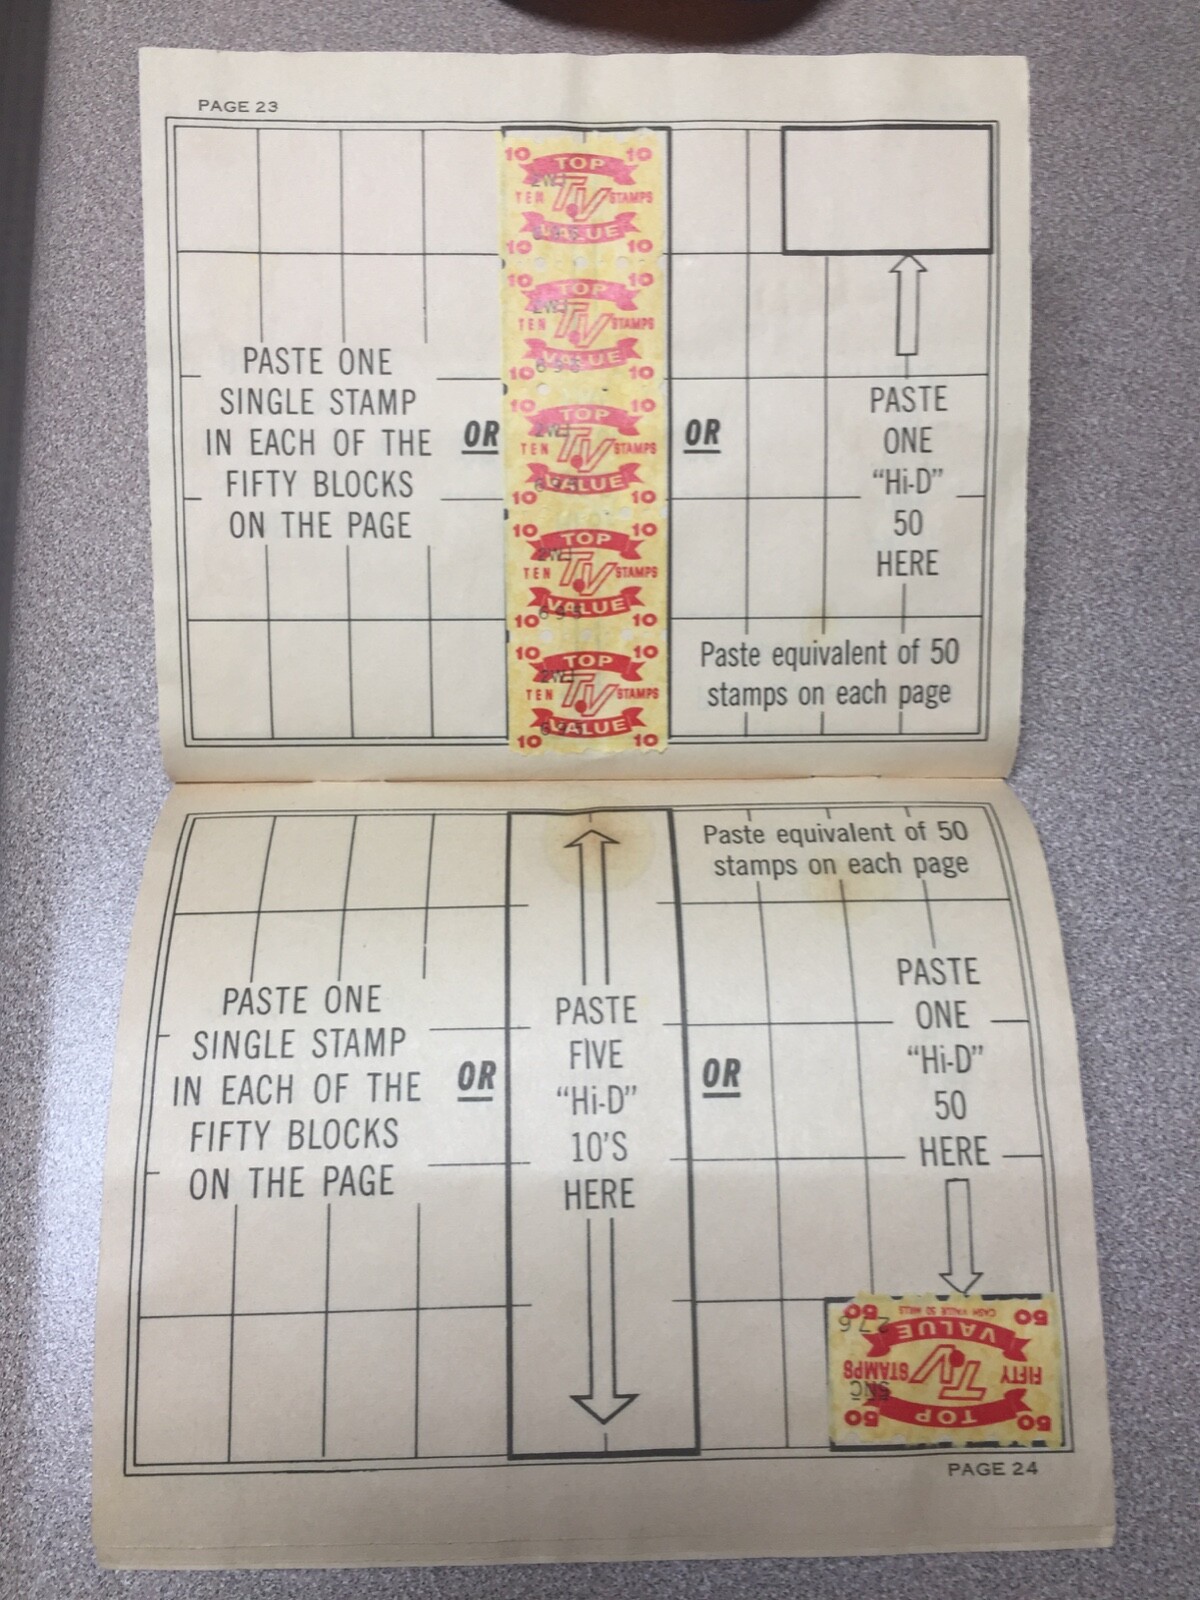 PAGE 23
10 TOP 10
2WJ
TEN TV STAMPS
VALUE
10 10
10 TOP 10
2WJ
TEN TV STAMPS
VALUE
695
10 10
10 TOP 10
2WJ
TEN TV STAMPS
VALUE
695
10 10
10 TOP 10
2WJ
TEN TV STAMPS
VALUE
695
10 10
10 TOP 10
2WJ
TEN TV STAMPS
VALUE
10 10
PASTE ONE
SINGLE STAMP
IN EACH OF THE
FIFTY BLOCKS
ON THE PAGE
OR
OR
PASTE
ONE
“Hi-D”
50
HERE
Paste equivalent of 50
stamps on each page
Paste equivalent of 50
stamps on each page
PASTE ONE
SINGLE STAMP
IN EACH OF THE
FIFTY BLOCKS
ON THE PAGE
OR
PASTE
FIVE
“Hi-D”
10'S
HERE
OR
PASTE
ONE
“Hi-D”
50
HERE
50 TOP 50
5NC
FIFTY TV STAMPS
VALUE
276
50 CASH VALUE 50 MILLS 50
PAGE 24